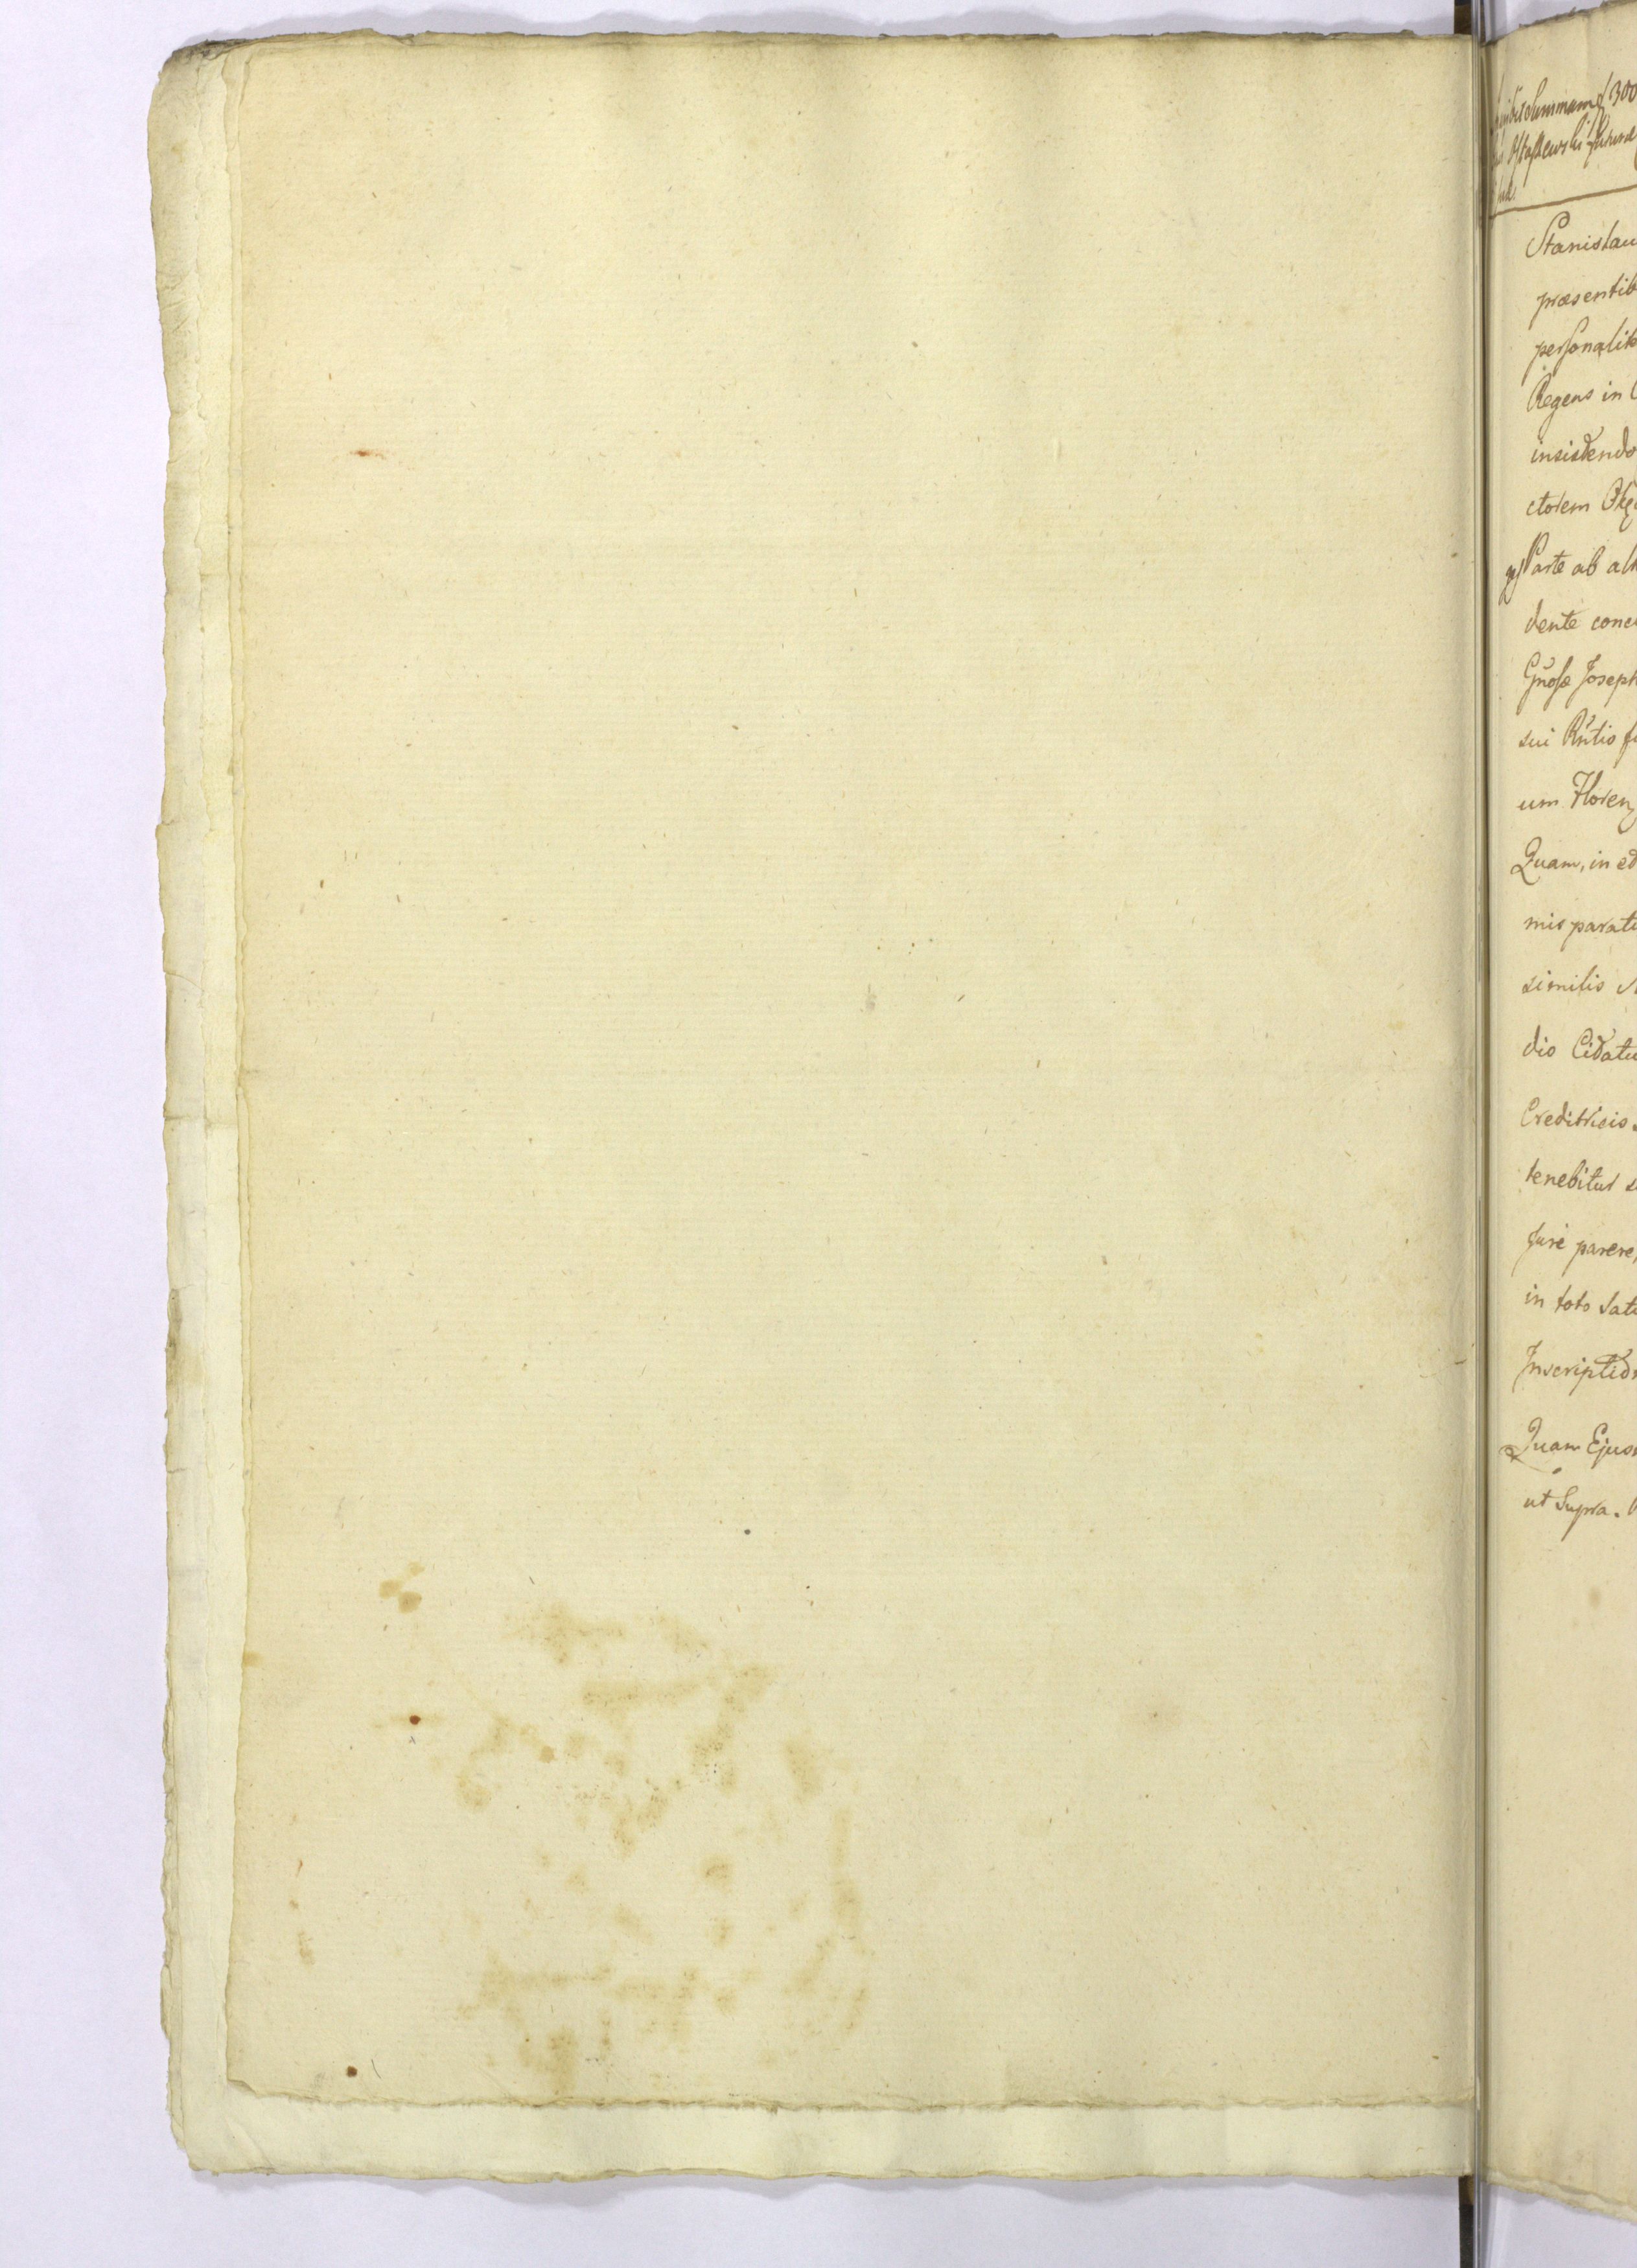 Summam 300
Ostaszewski
Stanislau
præsentib
personalit
Regens in
insistendo
ctorem
Parte ab alt
dente conc
Gnosæ Joseph
sui Rntio
um Floren
Quam, in ed
mis parat
similis
dio Cidatu
Creditricis
tenebitur s
Jure parere,
in toto Sat
Inscription
Quam Ejus
ut Supra.